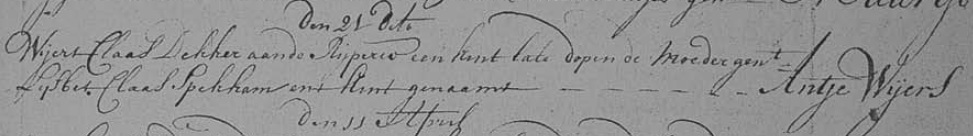 den 21 dito
Wijert Claas Dekker aande Rijperw een kint late dopen de moeder gent
Lijsbet Claas Spekham ent kint genaamt - - - - - - Antje Wijers
den 11 April